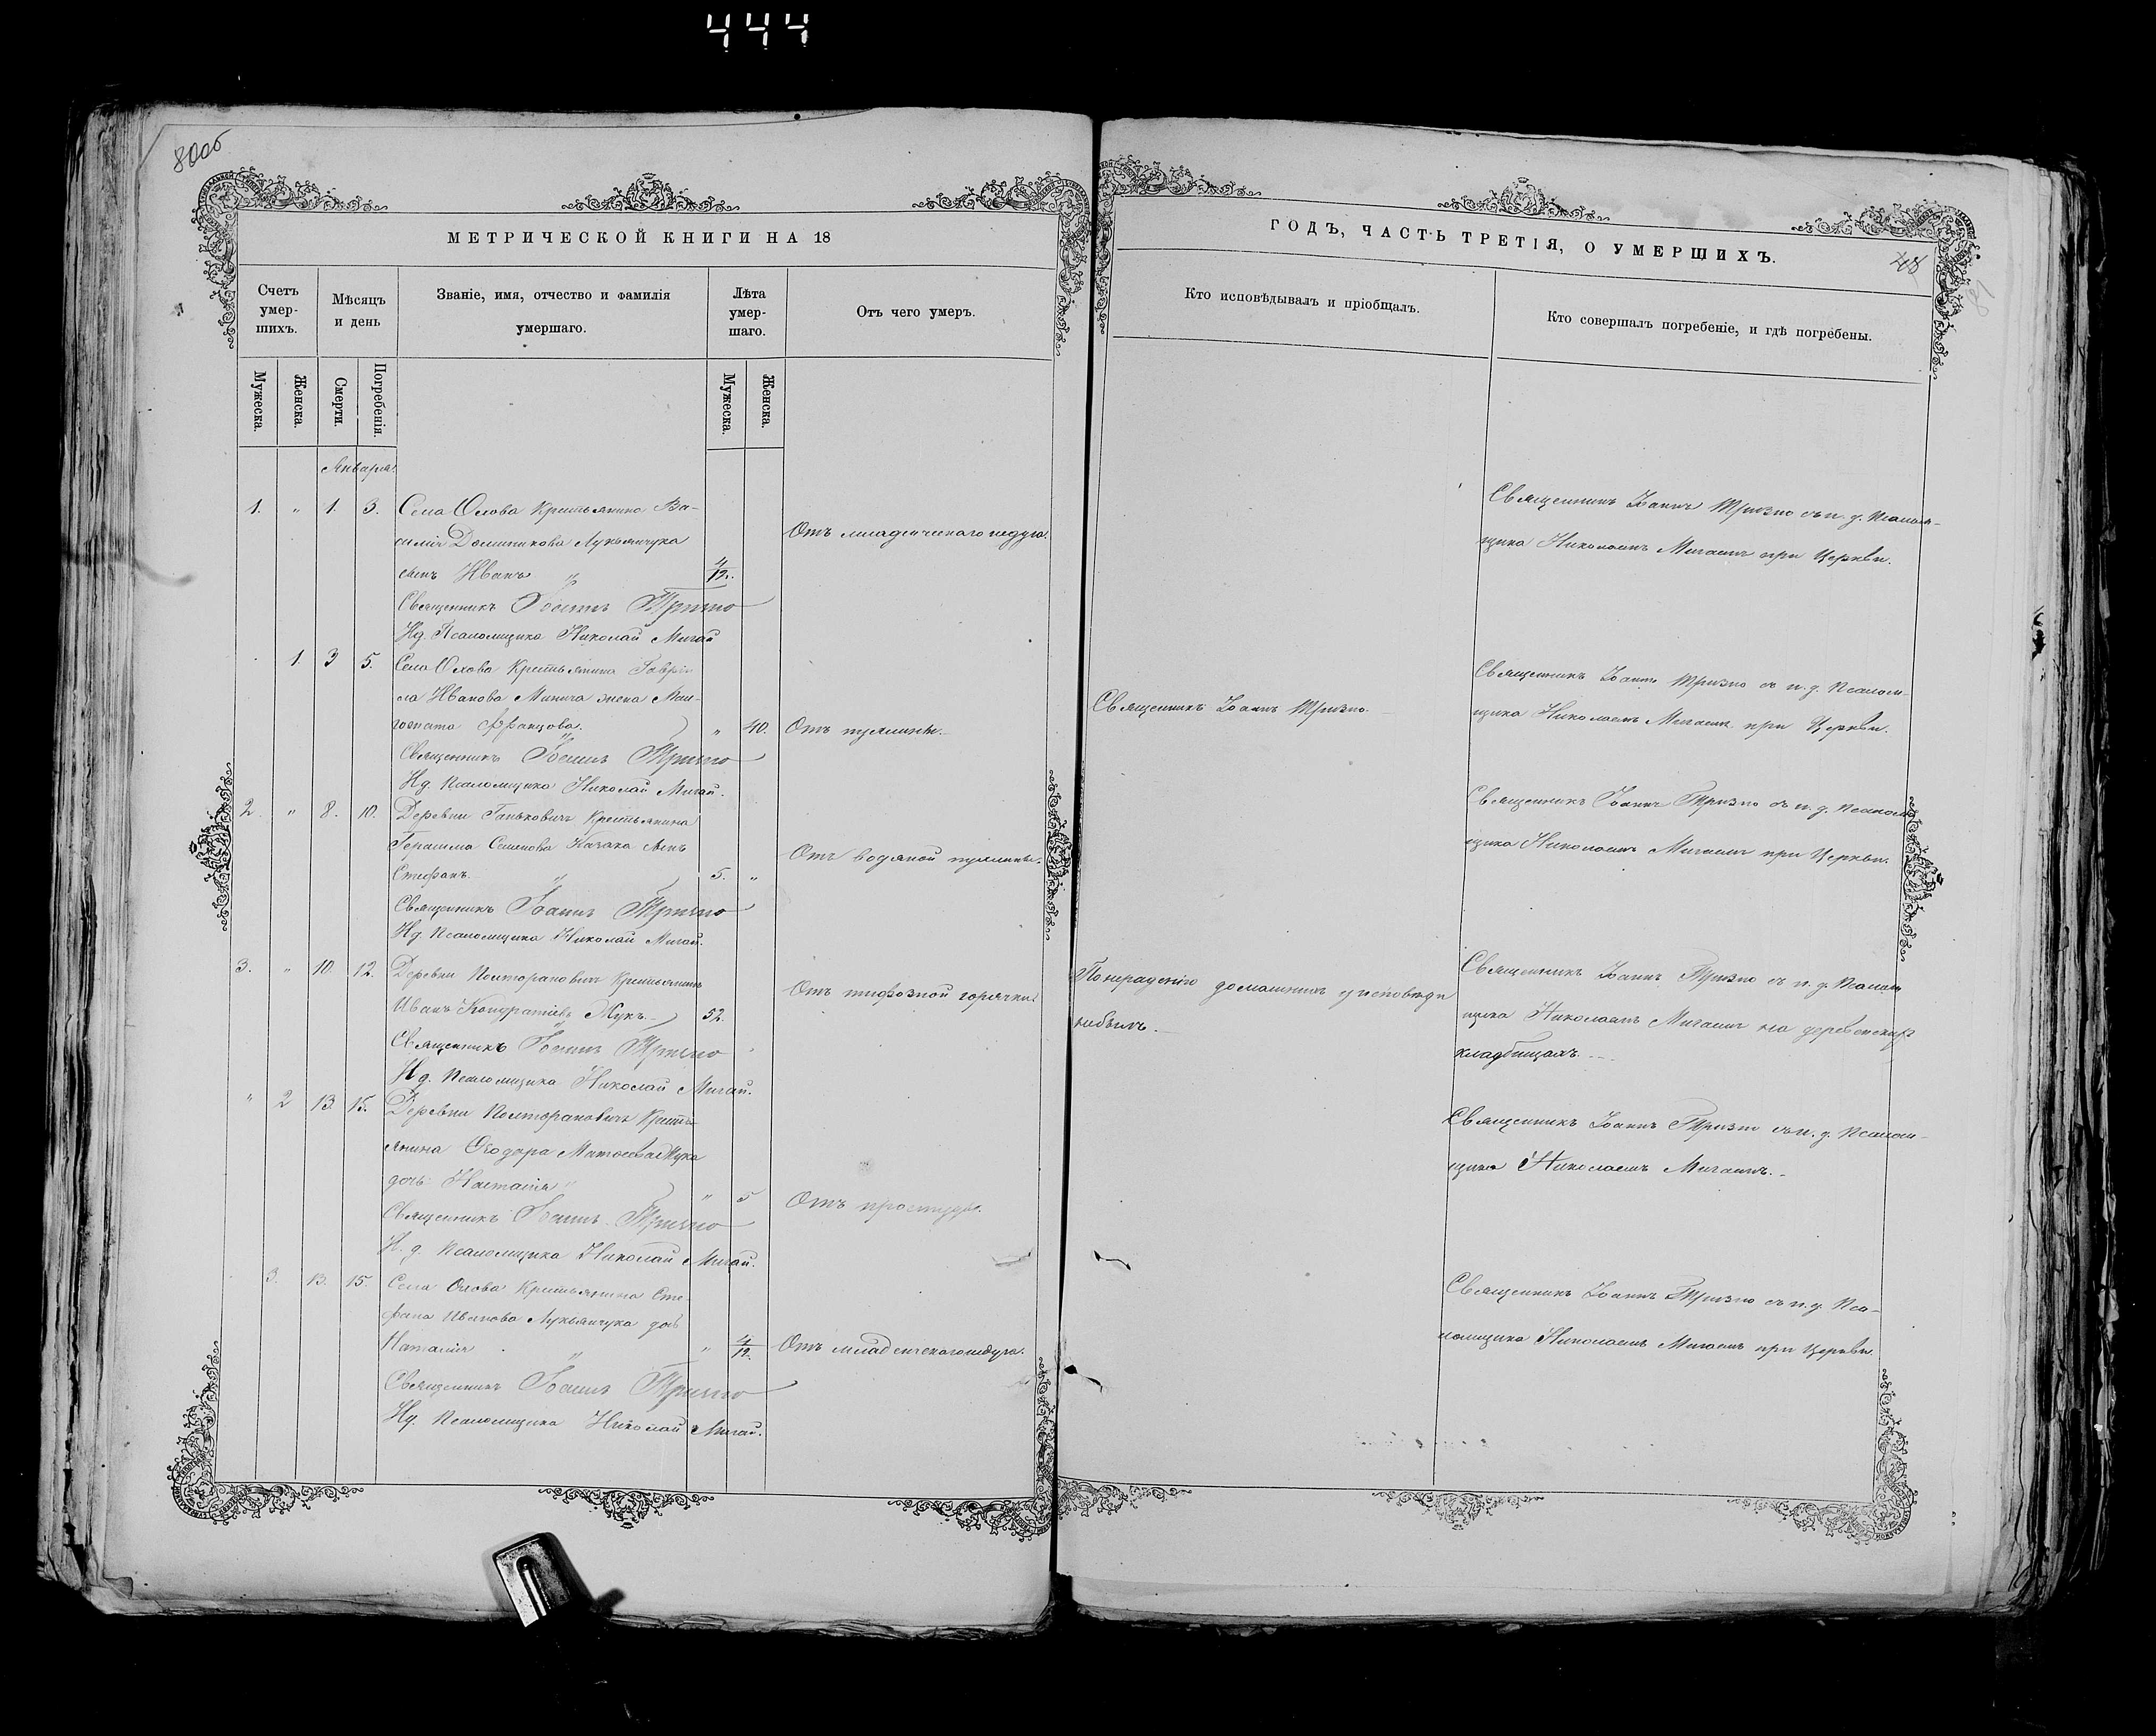 444
80об
МЕТРИЧЕСКОЙ КНИГИ НА 18
Счетъ умер-шихъ.
Мѣсяцъ и день
Званіе, имя, отчество и фамилія умершаго.
Лѣта умер-шаго.
Отъ чего умеръ.
Мужеска.
Женска.
Смерти.
Погребенія.
Мужеска.
Женска.
Января.
1. " 1. 3. Села Олова Крестьянина Ва-
силія Доминикова Лукьянчука
сынъ Иванъ 4/12. Отъ младенческаго недуга.
Священникъ Іоаннъ Тризно
Ид. Псаломщика Николай Мигай
1 3 5. Села Олова Крестьянина Гаври-
ла Иванова Минича жена
Францова. " 40. Отъ пухлины.
Священникъ Іоаннъ Тризно
Ид. Псаломщика Николай Мигай.
2. " 8. 10. Деревни Ганьковичъ Крестьянина
Герасима Семенова Казака сынъ
Стефанъ. 5. " Отъ водяной пухлины.
Священникъ Іоаннъ Тризно
Ид. Псаломщика Николай Мигай.
3. " 10. 12. Деревни Полторановичъ Крестьянинъ
Иванъ Кондратіевъ Жукъ. 52. Отъ тифозной горячки.
Священникъ Іоаннъ Тризно
Ид. Псаломщика Николай Мигай.
" 2 13 15. Деревни Полторановичъ Кресть-
янина Ѳеодора Матѳеева Жука
дочь Настасія " 5 Отъ простуды.
Священникъ Іоаннъ Тризно
И. д. Псаломщика Николай Мигай.
3. 13. 15. Села Олова Крестьянина Сте-
фана Иванова Лукьянчука дочь
Наталія " 4/12. Отъ младенческаго недуга.
Священникъ Іоаннъ Тризно
Ид. Псаломщика Николай Мигай.
ГОДЪ, ЧАСТЬ ТРЕТІЯ, О УМЕРШИХЪ.
48
81
Кто исповѣдывалъ и пріобщалъ.
Кто совершалъ погребеніе, и гдѣ погребены.
Священникъ Іоаннъ Тризно съ и. д. Псалом-
щика Николаемъ Мигаемъ при Церкви.
Священникъ Іоаннъ Тризно.
Священникъ Іоаннъ Тризно съ и. д. Псалом-
щика Николаемъ Мигаемъ при Церкви.
Священникъ Іоаннъ Тризно съ и. д. Псалом-
щика Николаемъ Мигаемъ при Церкви.
По нерадѣнію домашнихъ у исповѣди
небылъ.
Священникъ Іоаннъ Тризно съ и. д. Псалом-
щика Николаемъ Мигаемъ на деревенскихъ
кладбищахъ.
Священникъ Іоаннъ Тризно съ и. д. Псалом-
щика Николаемъ Мигаемъ.
Священникъ Іоаннъ Тризно съ и. д. Пса-
ломщика Николаемъ Мигаемъ при Церкви.